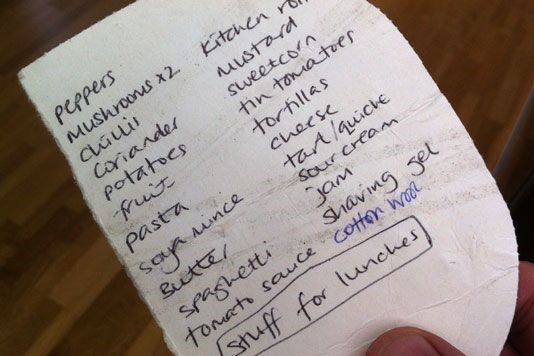 peppers
mushrooms x2
chilli
coriander
potatoes
fruit
pasta
soya mince
butter
spaghetti
tomato sauce
kitchen roll
mustard
sweetcorn
tin tomatoes
tortillas
cheese
tart/quiche
sour cream
jam
shaving gel
cotton wool
stuff for lunches